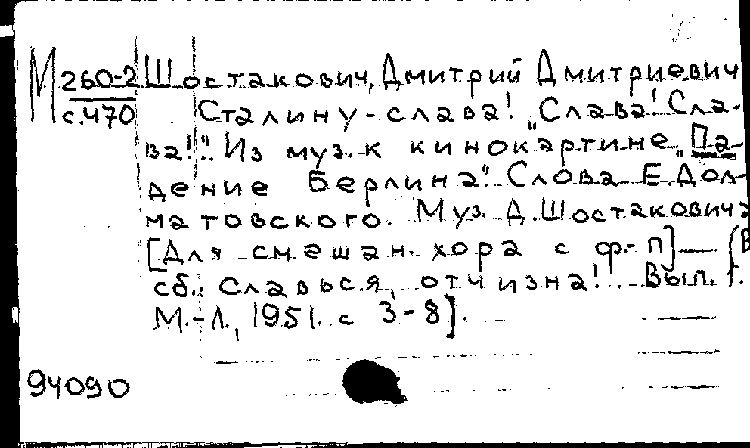 М 260-2 Шостакович, Дмитрий Дмитриевич
с.470 Сталину-слава! "Слава! Сла-
ва!". Из муз. к кинокартине "Па-
дение Берлина". Слова Е. Дол-
матовского. Муз. Д. Шостаковича
[Для смешан. хора с ф.-п] — [В
сб.: Славься, отчизна! Вып. 1.
М.-Л., 1951. с 3-8].
94090